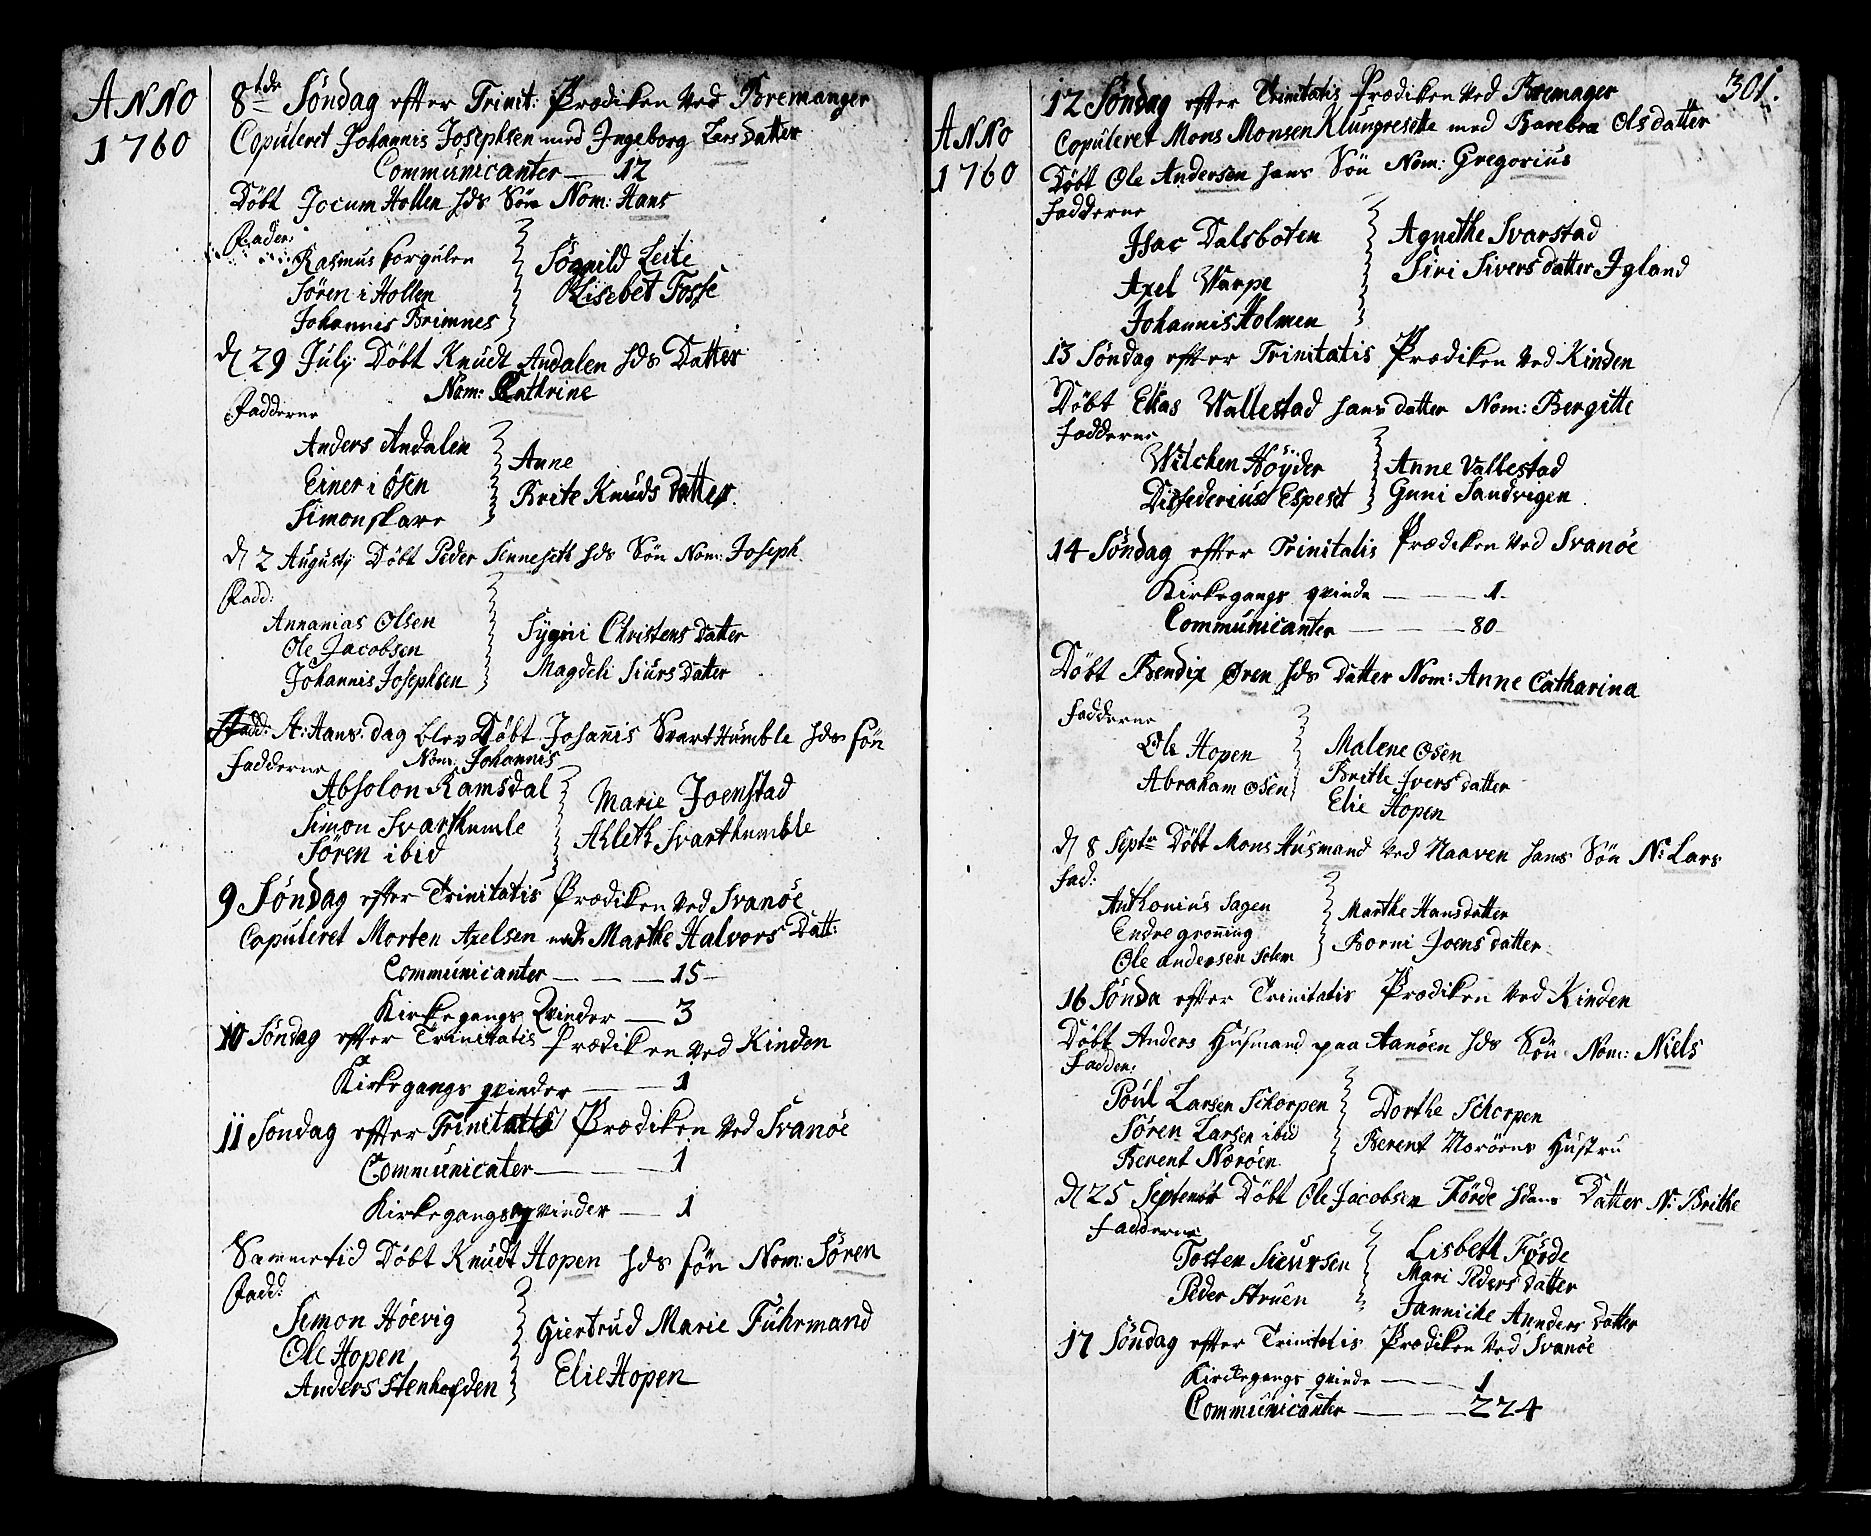 ANNO
1760
8tde Söndag efter Trinit: Prædiken ved Bremanger
Copuleret Johannis Josephsen med Ingeborg Lars Datter
Communicanter — 12
Döbt Jocum Hollen hds Sön Nom: Hans
Fader:
Rasmus Forgulen
Sören i Hollen
Johannis Brimnes
Sögnild Leite
Lisebet Fosse
d 29 July Döbt Knudt Andalen hds Datter
Nom: Cathrine
Fadderne
Anders Andalen
Einer i Øsen
Simon Skare
Anne
Brite Knuds Datter
d 2 Augusty Döbt Peder Senneseth hds Sön Nom: Joseph
Fadd:
Annanias Olsen
Ole Jacobsen
Johannis Josephsen
Sygni Christens Datter
Magdeli Siurs Datter
St: Hans dag blev Döbt Johanis Svarthumble hds sön
Nom: Johannis
Fadderne
Absolon Ramsdal
Simon Svarthumle
Sören ibid
Marie Joenstad
Ahleth Svarthumble
9 Söndag efter Trinitatis Prædiken ved Svanöe
Copuleret Morten Axelsen med Marthe Halvors Datt:
Communicanter — — — 15 —
Kirkegangs Qvinder — 3
10 Söndag efter Trinitatis Prædiken ved Kinden
Kirkegangs qvinder — — 1
11 Söndag efter Trinitatis Prædiken ved Svanöe
Communicater — — — 1
Kirkegangs qvinder — 1
Sammetid Döbt Knudt Hopen hds sön Nom: Sören
Fadd:
Simon Höevig
Ole Hopen
Anders Stenhofden
Giertrud Marie Fuhrmand
Elie Hopen
301.
ANNO
1760
12 Söndag efter Trinitatis Prædiken ved Bremager
Copuleret Mons Monsen Klungresette med Barebra Olsdatter
Döbt Ole Andersen hans Sön Nom: Gregorius
Fadderne
Isac Dalsboten
Axel Warpe
Johannis Holmen
Agnethe Svarstad
Siri Sivers datter Igland
13 Söndag efter Trinitatis Prædiken ved Kinden
Döbt Elias Wallestad hans datter Nom: Bergitte
Fadderne
Wilchen Höyder
Espeset
Anne Vallestad
Guni Sandvigen
14 Söndag efter Trinitatis Prædiken ved Svanöe
Kirkegangs qvinde — — — 1 —
Communicanter — — — 80 —
Döbt Bendix Øren hds datter Nom: Anne Catharina
Fadderne
Ole Hopen
Abraham Osen
Malene Osen
Brithe Ivers datter
Elie Hopen
d 8 Septr Döbt Mons Husmand ved Naaven hans Sön N: Lars
Fad:
Anthonius Sagen
Endre gröning
Ole andersen Solem
Marthe Hansdatter
Borni Joens datter
16 Sönda efter Trinitatis Prædiken ved Kinden
Döbt Anders Husmand paa Aanöen hds Sön Nom: Niels
Fadder:
Poul Larsen Schorpen
Sören Larsen ibid
Berent Noröen
Dorthe Schorpen
Berent Noröens Hustru
d 25 Septembr Döbt Ole Jacobsen Förde hans Datter N: Brithe
Fadderne
Tosten Sieursen
Peder Struen
Lisbeth Förde
Mari Peders datter
Jannicke Annders Datter
17 Söndag efter Trinitatis Prædiken ved Svanöe
Kirckegangs qvinde — — — 1
Communicanter — — — 224